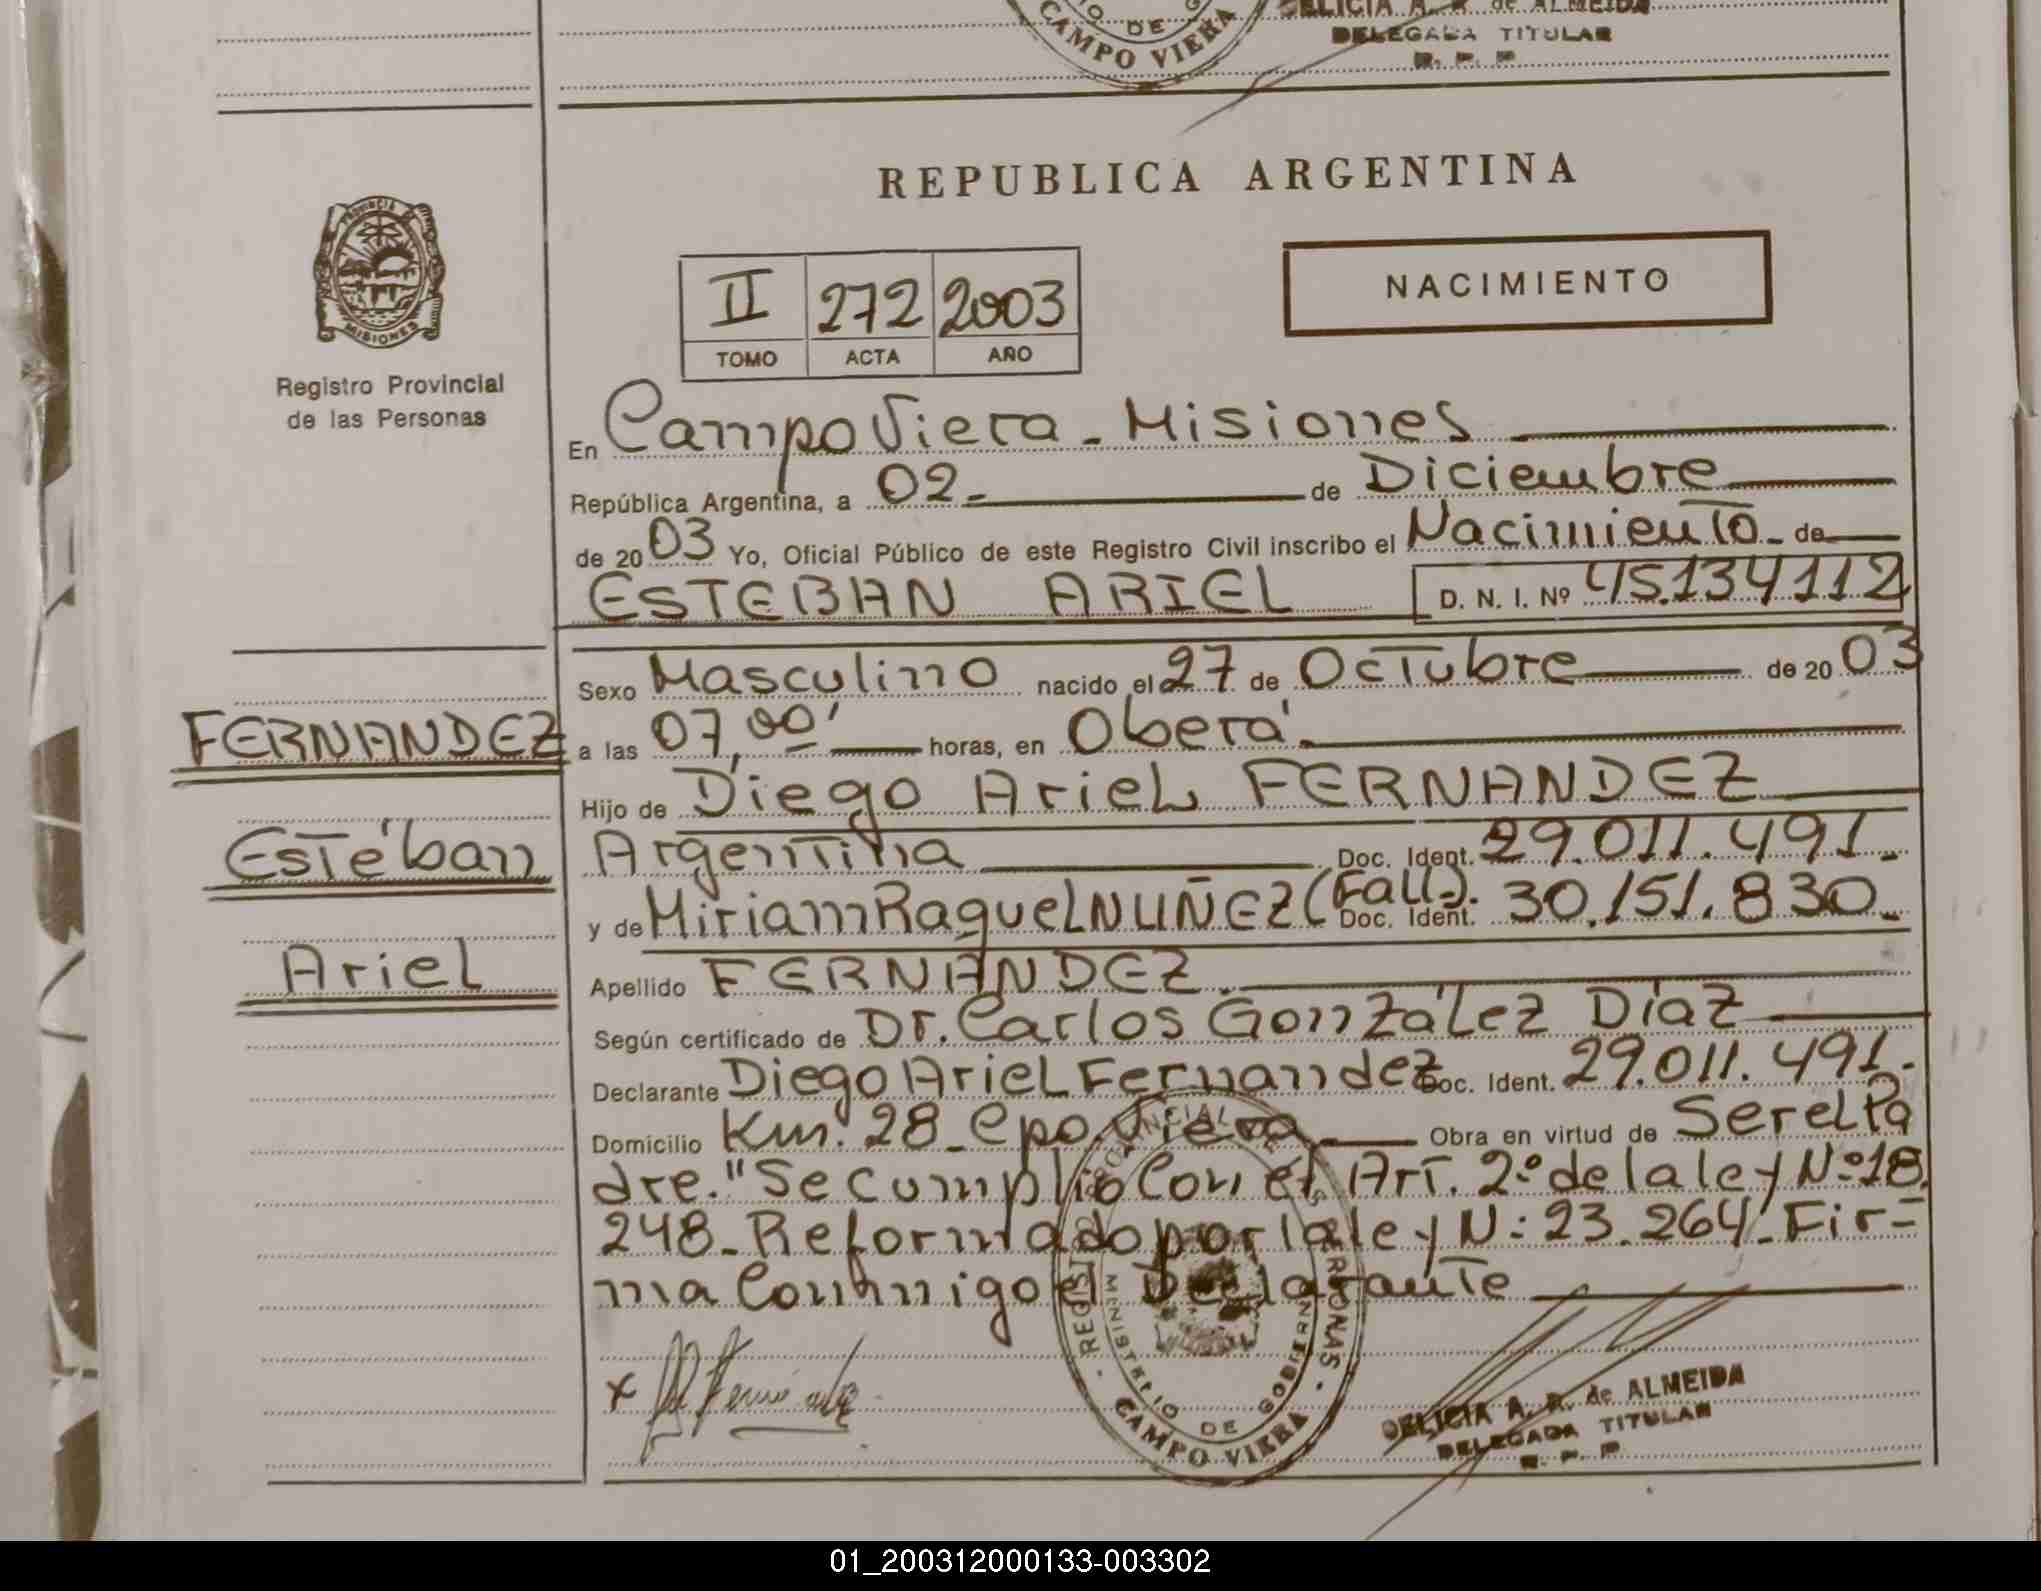 CAMPO VIERA
DELICIA A. R. de ALMEIDA
DELEGADA TITULAR
R. P. P
REPUBLICA ARGENTINA
PROVINCIA DE
MISIONES
Registro Provincial
de las Personas
II 272 2003
TOMO ACTA AÑO
NACIMIENTO
En Campo Viera - Misiones
República Argentina, a 02- de Diciembre
de 2003 Yo, Oficial Público de este Registro Civil inscribo el Nacimiento - de
ESTEBAN ARIEL D. N. I. Nº 45.134112
Sexo Masculino nacido el 27 de Octubre de 2003
FERNANDEZ
a las 07,00' horas, en Oberá
Hijo de Diego Ariel FERNANDEZ
Estéban
Argentina Doc. Ident. 29.011.491.-
y de Miriam Raquel NUÑEZ (Fall). Doc. Ident. 30.151.830.-
Ariel
Apellido FERNANDEZ.
Según certificado de Dr. Carlos González Díaz
Declarante Diego Ariel Fernandez Doc. Ident. 29.011.491.-
Domicilio Km. 28 - Cpo. Viera Obra en virtud de Ser el Pa
dre. "Se cumplió Con el Art. 2º de la ley Nº 18.
248 - Reformado por la ley N: 23.264 - Fir=
ma Conmigo el Declarante
x Fernandez
REGISTRO PROVINCIAL DE LAS PERSONAS
MINISTERIO DE GOBIERNO
CAMPO VIERA
DELICIA A. R. de ALMEIDA
DELEGADA TITULAR
R. P. P
01_200312000133-003302